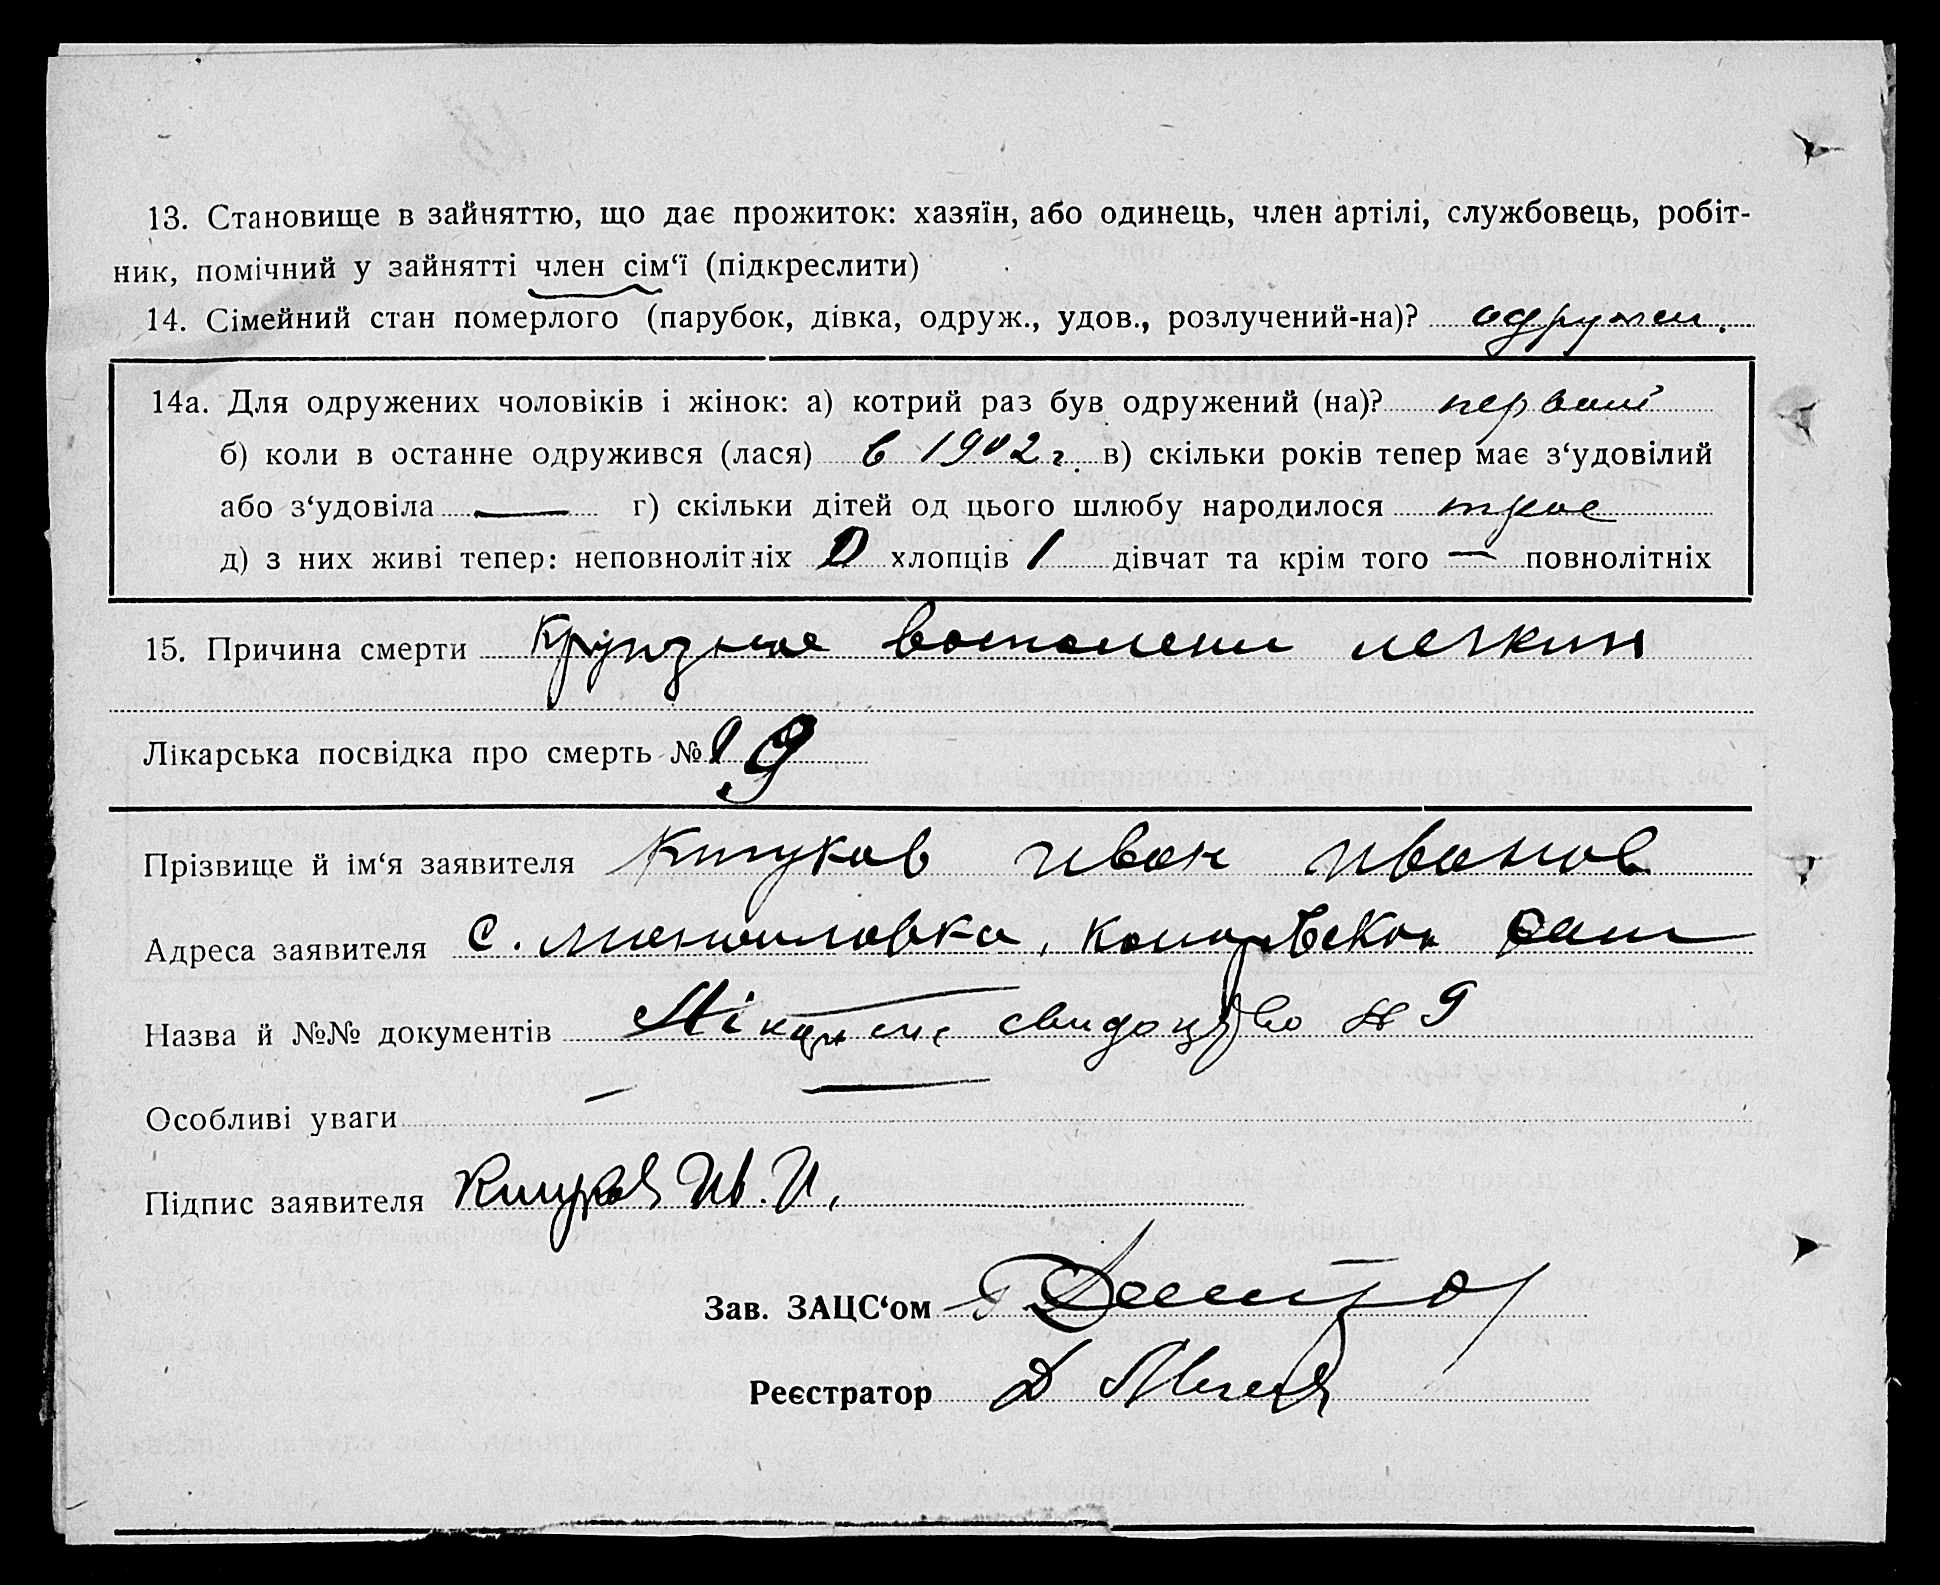 13. Становище в зайняттю, що дає прожиток: хазяїн, або одинець, член артілі, службовець, робіт-
ник, помічний у зайнятті член сім‘ї (підкреслити)
14. Сімейний стан померлого (парубок, дівка, одруж., удов., розлучений-на)? одружен.
14а. Для одружених чоловіків і жінок: а) котрий раз був одружений (на)? первий
б) коли в останне одружився (лася) в 1902 г. в) скільки років тепер має з‘удовілий
або з‘удовіла — г) скільки дітей од цього шлюбу народилося трое
д) з них живі тепер: неповнолітніх хлопців 1 дівчат та крім того — повнолітніх
15. Причина смерти Крупозное воспаление легких
Лікарська посвідка про смерть № 9
Прізвище й ім‘я заявителя Иван Иванов
Адреса заявителя с.
Назва й №№ документів свидоцтво № 9
Особливі уваги
Підпис заявителя Ив. И.
Зав. ЗАЦС‘ом
Реєстратор